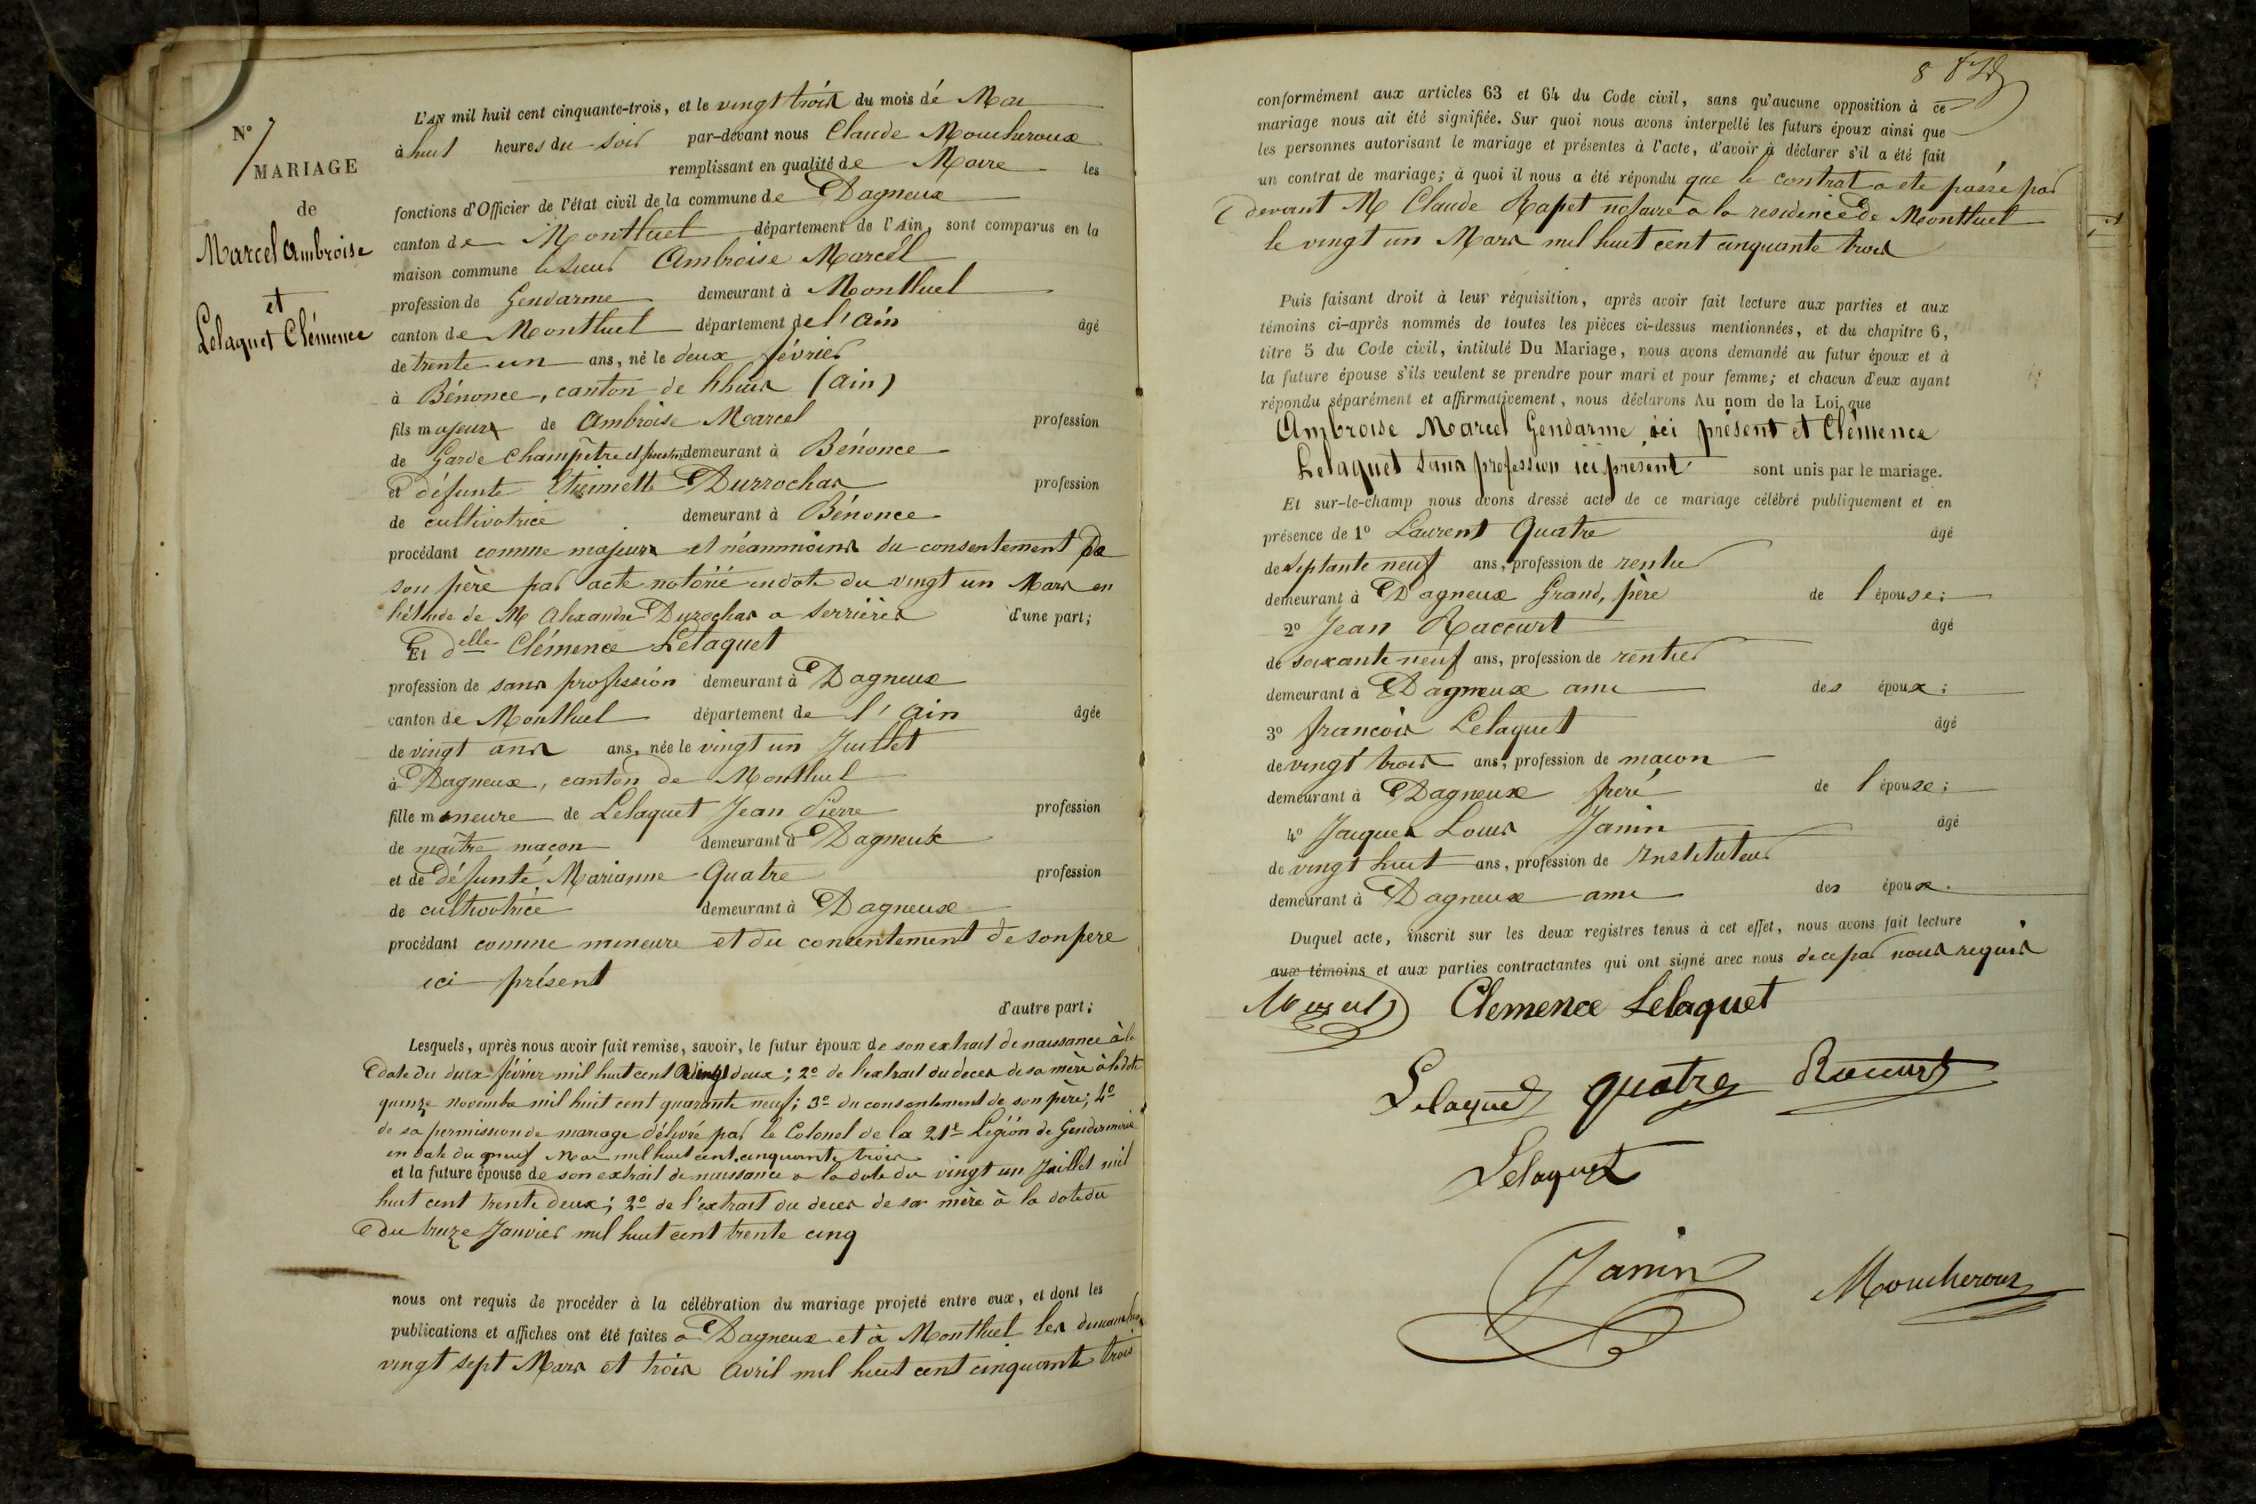 N° 7
MARIAGE
de
Marcel Ambroise
et
Lelaquet Clémence
L'AN mil huit cent cinquante-trois, et le vingt trois du mois de Mai
à huit heures du soir par-devant nous Claude Moucheroux
remplissant en qualité de Maire les
fonctions d'Officier de l'état civil de la commune de Dagneux
canton de Montluel département de l'Ain, sont comparus en la
maison commune le sieur Ambroise Marcel
profession de Gendarme demeurant à Montluel
canton de Montluel département de l'Ain âgé
de trente un ans, né le deux février
à Bénonce, canton de lhuis (Ain)
fils majeur de Ambroise Marcel profession
de Garde Champêtre et demeurant à Bénonce
et défunte Etiennette Durrochas profession
de cultivatrice demeurant à Bénonce
procédant comme majeur et néanmoins du consentement de
son père par acte notorié en date du vingt un Mars en
l'étude de M Alexandre Durochas a Serrières d'une part;
Et delle Clémence Lelaquet
profession de sans profession demeurant à Dagneux
canton de Montluel département de l'Ain âgée
de vingt ans ans, née le vingt un Juillet
à Dagneux, canton de Montluel
fille mineure de Lelaquet Jean Pierre profession
de maître maçon demeurant à Dagneux
et de défunte Marianne Quatre profession
de cultivatrice demeurant à Dagneux
procédant comme mineure et du consentement de son père
ici présent
d'autre part;
Lesquels, après nous avoir fait remise, savoir, le futur époux de son extrait de naissance à la
date du deux février mil huit cent vingt deux; 2° de l'extrait du déces de sa mère à la date
quinze novembre mil huit cent quarante neuf; 3° du consentement de son père; 4°
de sa permission de mariage délivré par le Colonel de la 21e Légion de Gendarmerie
en date du neuf Mai mil huit cent cinquante trois
et la future épouse de son extrait de naissance a la date du vingt un Juillet mil
huit cent trente deux; 2° de l'extrait du déces de sa mère à la date du
du treize Janvier mil huit cent trente cinq
nous ont requis de procéder à la célébration du mariage projeté entre eux, et dont les
publications et affiches ont été faites a Dagneux et à Montluel les dimanches
vingt sept Mars et trois Avril mil huit cent cinquante trois
8
conformément aux articles 63 et 64 du Code civil, sans qu'aucune opposition à ce
mariage nous ait été signifiée. Sur quoi nous avons interpellé les futurs époux ainsi que
les personnes autorisant le mariage et présentes à l'acte, d'avoir à déclarer s'il a été fait
un contrat de mariage; à quoi il nous a été répondu que le contrat a ete passé par
devant M Claude Rapet notaire a la residence de Montluel
le vingt un Mars mil huit cent cinquante trois
Puis faisant droit à leur réquisition, après avoir fait lecture aux parties et aux
témoins ci-après nommés de toutes les pièces ci-dessus mentionnées, et du chapitre 6,
titre 5 du Code civil, intitulé Du Mariage, nous avons demandé au futur époux et à
la future épouse s'ils veulent se prendre pour mari et pour femme; et chacun d'eux ayant
répondu séparément et affirmativement, nous déclarons Au nom de la Loi que
Ambroise Marcel Gendarme ici présent et Clémence
Lelaquet sans profession ici présent sont unis par le mariage.
Et sur-le-champ nous avons dressé acte de ce mariage célébré publiquement et en
présence de 1° Laurent Quatre âgé
de septante neuf ans, profession de rentier
demeurant à Dagneux Grand, père de l'épouse;
2° Jean Raccurt âgé
de soixante neuf ans, profession de rentier
demeurant à Dagneux ami des époux;
3° francois Lelaquet âgé
de vingt trois ans, profession de maçon
demeurant à Dagneux frère de l'épouse;
4° Jacques Louis Janin âgé
de vingt huit ans, profession de Instituteur
demeurant à Dagneux ami des époux.
Duquel acte, inscrit sur les deux registres tenus à cet effet, nous avons fait lecture
aux témoins et aux parties contractantes qui ont signé avec nous de ce par nous requis
Marcel Clemence Lelaquet
Lelaquet quatre Raccurt
Lelaquet
Janin Moucheroux